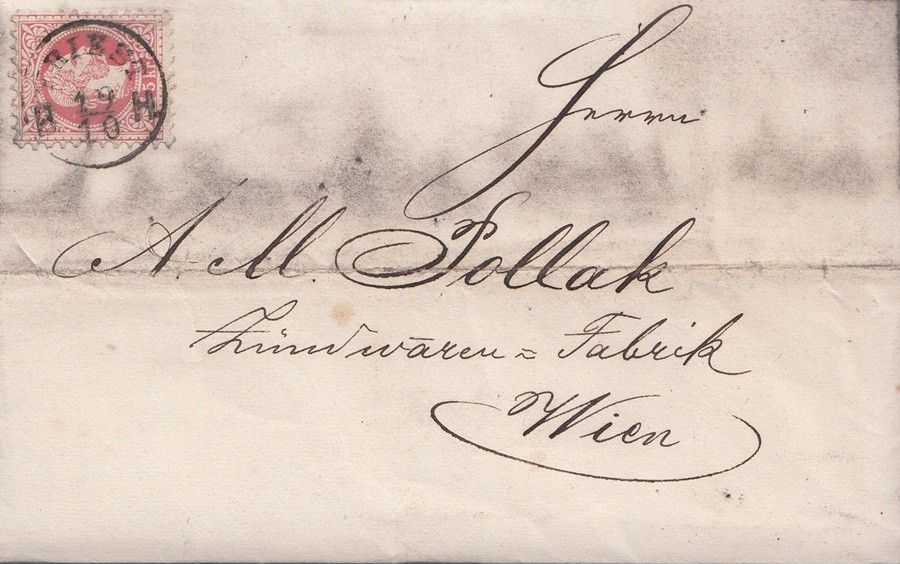 TRIEST
19
10
Herrn
A. M. Pollak
Zündwaren = Fabrik
Wien